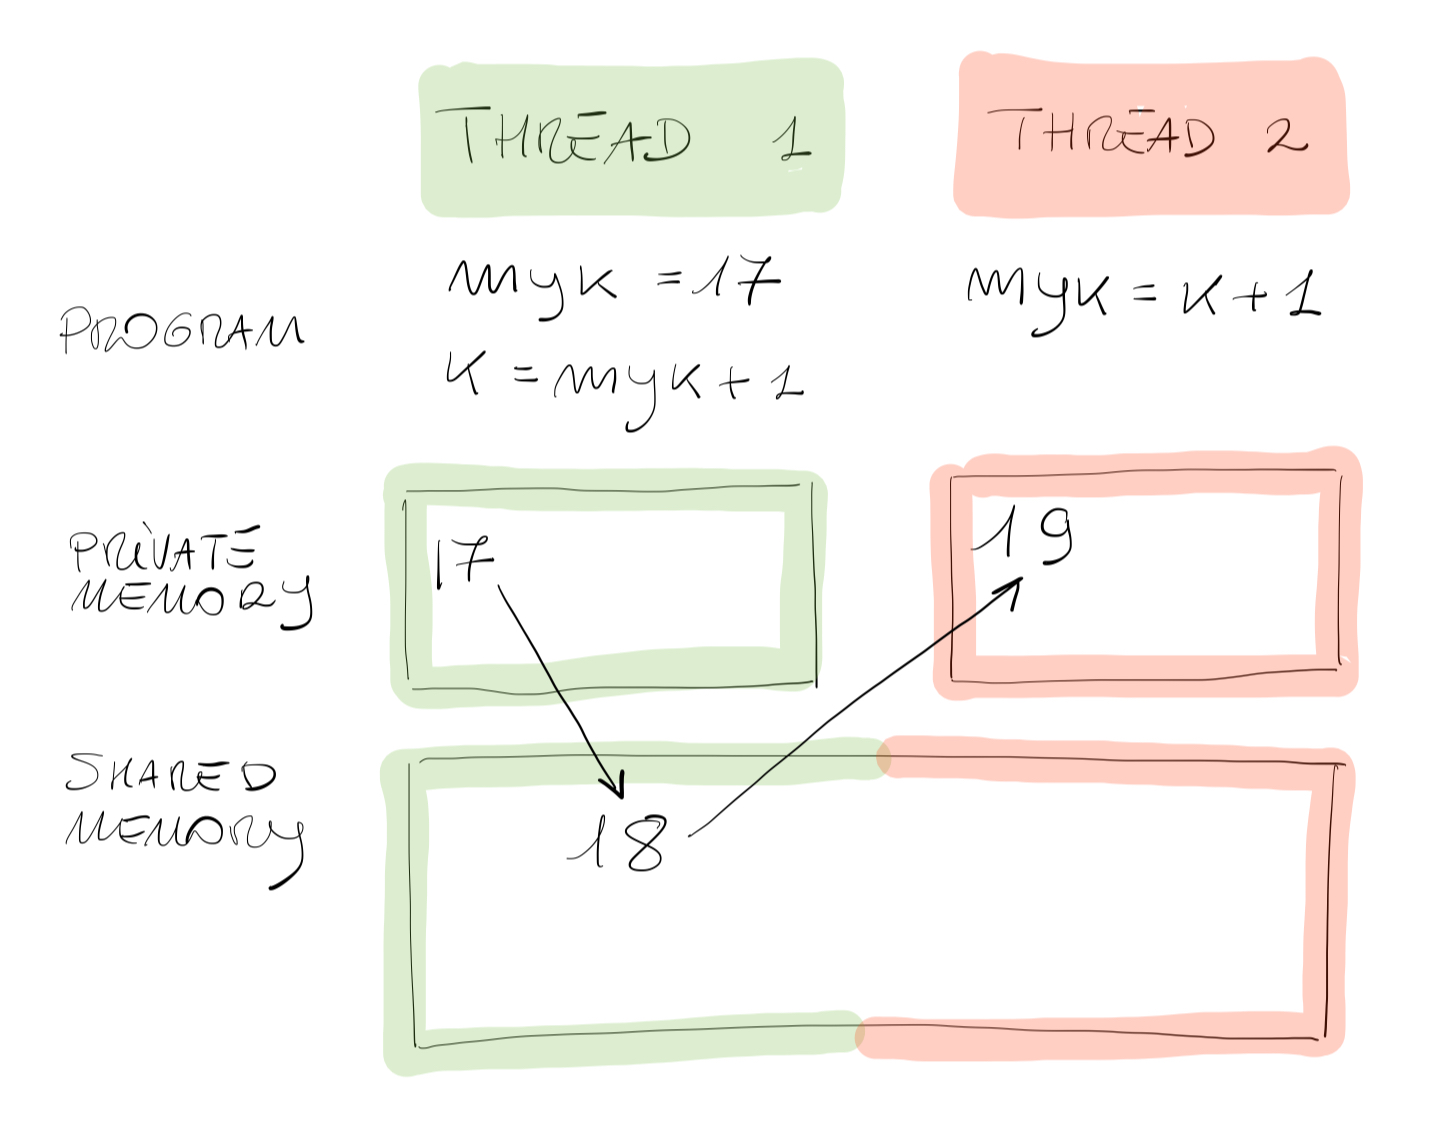 THREAD 1
THREAD 2
PROGRAM
myk = 17
k = myk + 1
myk = k + 1
PRIVATE
MEMORY
17
19
SHARED
MEMORY
18